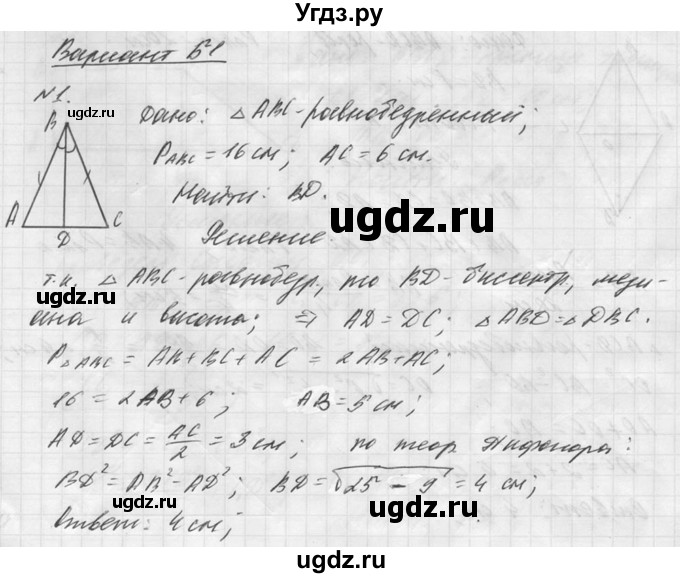 Угдз.ру
Вариант Б1
№1.
Дано: △ABC-равнобедренный;
P_ABC = 16 см; AC = 6 см.
Найти: BD.
B
A
D
C
Решение.
т.к. △ABC-равнобедр, то BD-биссектр, меди-
ана и высота; ⇒ AD=DC; △ABD=△DBC.
P_△ABC = AB+BC+AC = 2AB+AC;
16 = 2AB+6; AB=5 см;
AD=DC=AC/2=3 см; по теор Пифагора:
BD²=AB²-AD²; BD=√25-9=4 см;
Ответ: 4 см;
ugdz.ru
ugdz.ru
ugdz.ru
ugdz.ru
ugdz.ru
ugdz.ru
ugdz.ru
ugdz.ru
ugdz.ru
ugdz.ru